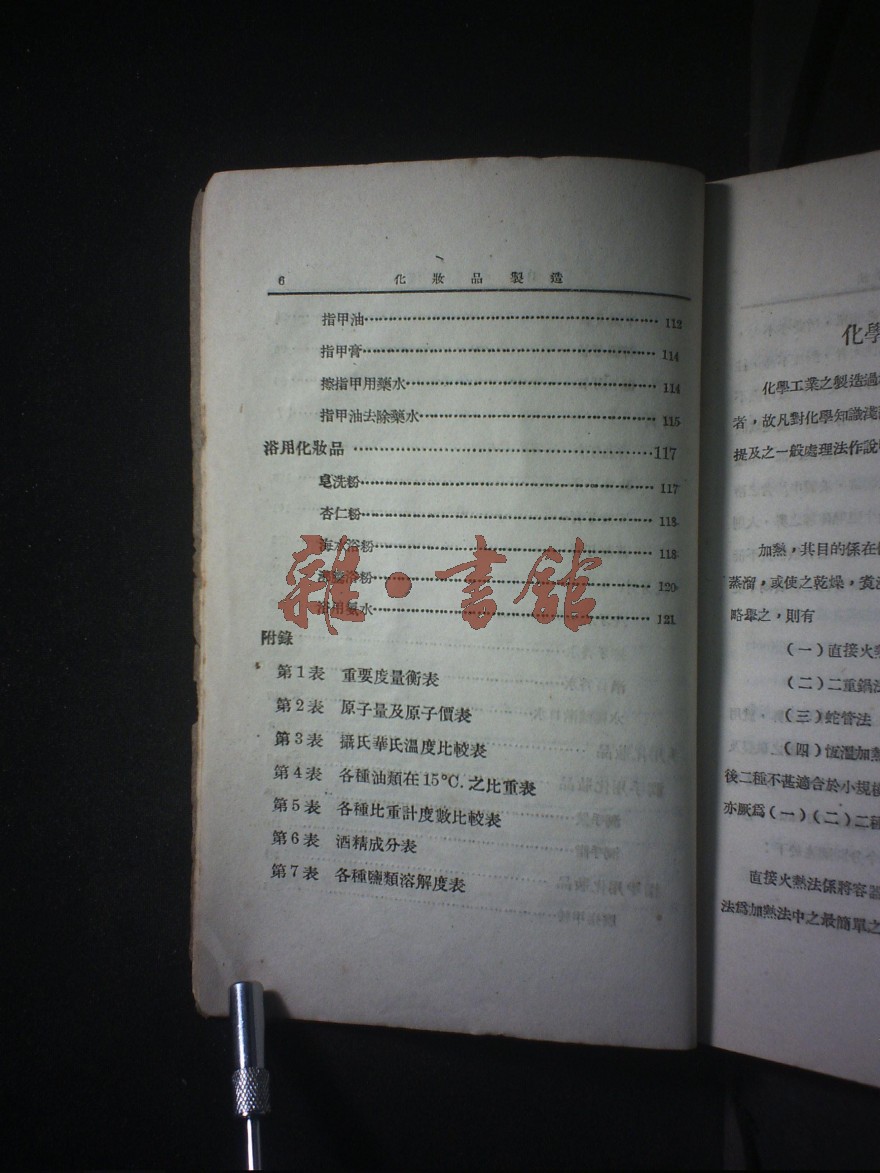 6 化妝品製造
指甲油 112
指甲膏 114
擦指甲用藥水 114
指甲油去除藥水 115
浴用化妝品 117
皂洗粉 117
杏仁粉 118
海水浴粉 118
浴粉 120
浴用氨水 121
雜·書館
附錄
第1表 重要度量衡表
第2表 原子量及原子價表
第3表 攝氏華氏溫度比較表
第4表 各種油類在15°C.之比重表
第5表 各種比重計度數比較表
第6表 酒精成分表
第7表 各種鹽類溶解度表
化學
化學工業之製造過
者，故凡對化學知識淺
提及之一般處理法作說
加熱，其目的係在
蒸溜，或使之乾燥，
略舉之，則有
（一）直接火熱
（二）二重鍋法
（三）蛇管法
（四）恆溫加熱
後二種不甚適合於小規模
亦厥爲（一）（二）二種
直接火熱法係將容器
法爲加熱法中之最簡單之